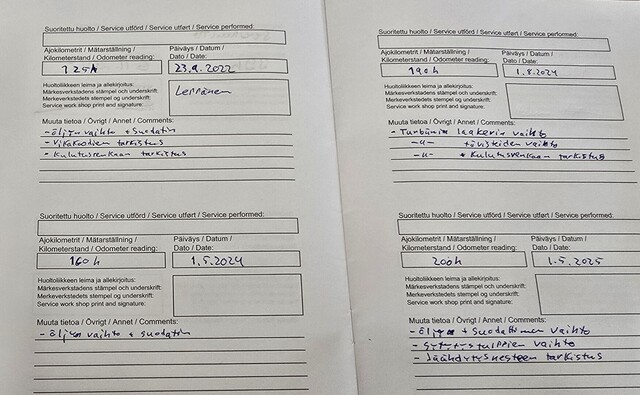 Suoritettu huolto / Service utförd / Service utført / Service performed:
Ajokilometrit / Mätarställning /
Kilometerstand / Odometer reading:
Päiväys / Datum /
Dato / Date:
125h
23.9.2022
Huoltoliikkeen leima ja allekirjoitus:
Märkesverkstadens stämpel och underskrift:
Merkeverkstedets stempel og underskrift:
Service work shop print and signature:
Leppänen
Muuta tietoa / Övrigt / Annet / Comments:
- Öljyn vaihto + Suodatin
- Vikakoodien tarkistus
- Kulutusrenkaan tarkistus
Suoritettu huolto / Service utförd / Service utført / Service performed:
Ajokilometrit / Mätarställning /
Kilometerstand / Odometer reading:
Päiväys / Datum /
Dato / Date:
160h
1.5.2024
Huoltoliikkeen leima ja allekirjoitus:
Märkesverkstadens stämpel och underskrift:
Merkeverkstedets stempel og underskrift:
Service work shop print and signature:
Muuta tietoa / Övrigt / Annet / Comments:
- Öljyn vaihto + suodatin
Suoritettu huolto / Service utförd / Service utført / Service performed:
Ajokilometrit / Mätarställning /
Kilometerstand / Odometer reading:
Päiväys / Datum /
Dato / Date:
190h
1.8.2024
Huoltoliikkeen leima ja allekirjoitus:
Märkesverkstadens stämpel och underskrift:
Merkeverkstedets stempel og underskrift:
Service work shop print and signature:
Muuta tietoa / Övrigt / Annet / Comments:
- Turbiinin laakerin vaihto
-"- tiivisteiden vaihto
-"- + Kulutusrenkaan tarkistus
Suoritettu huolto / Service utförd / Service utført / Service performed:
Ajokilometrit / Mätarställning /
Kilometerstand / Odometer reading:
Päiväys / Datum /
Dato / Date:
200h
1.5.2025
Huoltoliikkeen leima ja allekirjoitus:
Märkesverkstadens stämpel och underskrift:
Merkeverkstedets stempel og underskrift:
Service work shop print and signature:
Muuta tietoa / Övrigt / Annet / Comments:
- Öljyn + Suodattimen vaihto
- Sytytystulppien vaihto
- Jäähdytysnesteen tarkistus